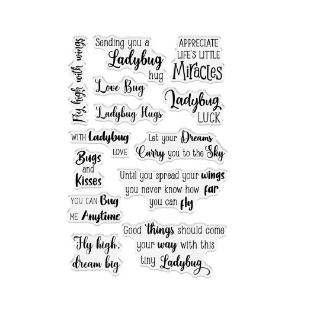 Fly high with wings
Sending you a
Ladybug
hug
Love Bug
Ladybug Hugs
APPRECIATE
LIFE'S LITTLE
Miracles
Ladybug
LUCK
WITH Ladybug
LOVE
Bugs
and
Kisses
YOU CAN Bug
ME Anytime
Fly high,
dream big
Let your Dreams
Carry you to the Sky
Until you spread your wings
you never know how far
you can fly
Good things should come
your way with this
tiny Ladybug